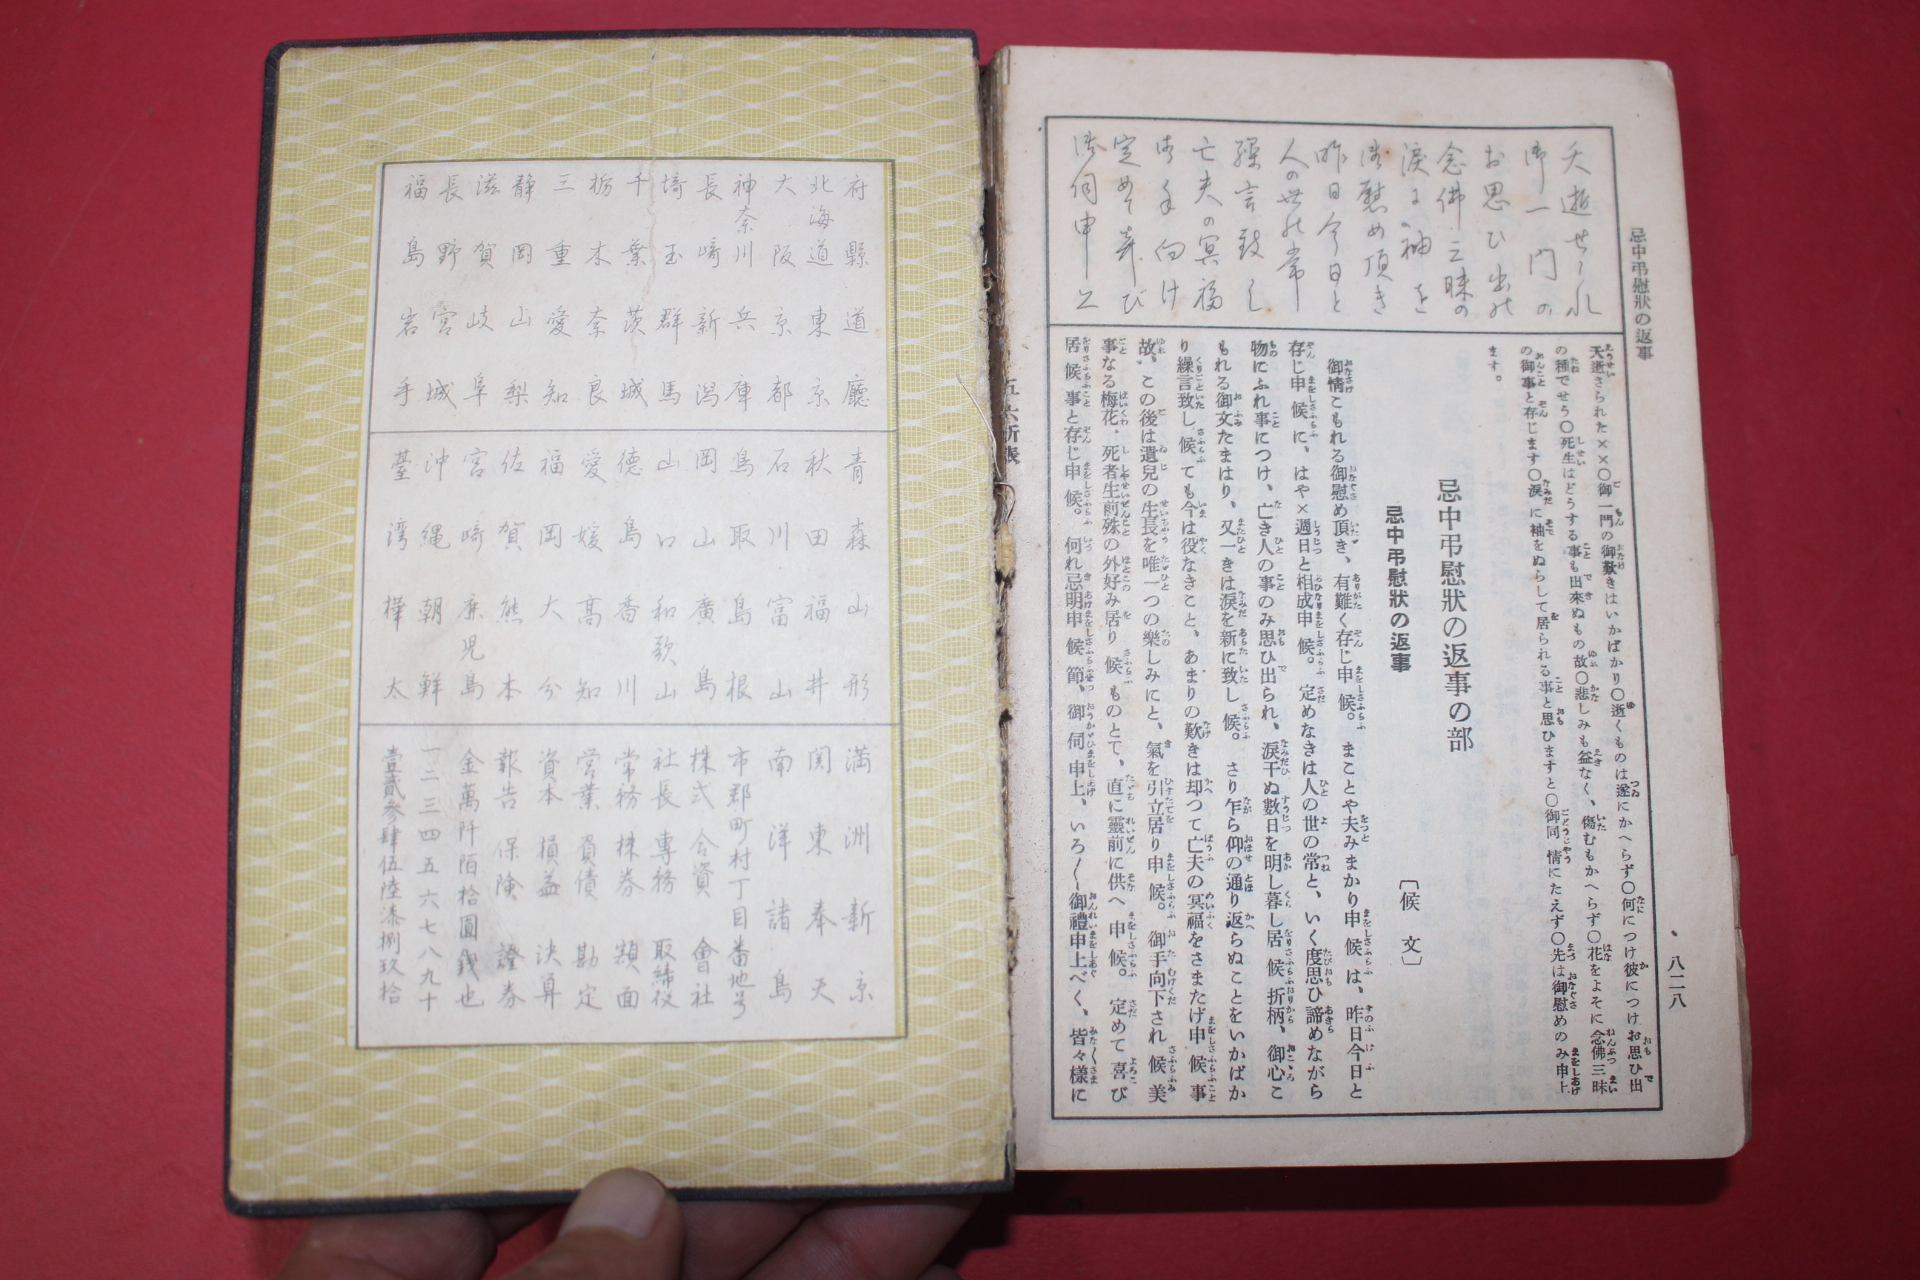 忌中弔慰狀の返事
八二八
夭逝せられ
御一門の
お思ひ出の
念佛三昧の
涙に袖を
御慰め頂き
昨日今日と
人の世の常
繰言致し
亡夫の冥福
御手向け
定めて喜び
御伺申上
夭逝された××〇御一門の御歎きはいかばかり〇逝くものは遂にかへらず〇何につけ彼につけお思ひ出
の種でせう〇死生はどうする事も出來ぬもの故〇悲しみも益なく、傷むもかへらず〇花をよそに念佛三昧
の御事と存じます〇涙に袖をぬらして居られる事と思ひますと〇御同情にたえず〇先は御慰めのみ申上
ます。
忌中弔慰狀の返事の部
忌中弔慰狀の返事
〔候 文〕
御情こもれる御慰め頂き、有難く存じ申候。まことや夫みまかり申候は、昨日今日と
存じ申候に、はや×週日と相成申候。定めなきは人の世の常と、いく度思ひ諦めながら
物にふれ事につけ、亡き人の事のみ思ひ出られ、涙干ぬ數日を明し暮し居候折柄、御心こ
もれる御文たまはり、又一きは涙を新に致し候。さり乍ら仰の通り返らぬことをいかばか
り繰言致し候ても今は役なきこと、あまりの歎きは却つて亡夫の冥福をさまたげ申候事
故、この後は遺兒の生長を唯一つの樂しみにと、氣を引立居り申候。御手向下され候美
事なる梅花、死者生前殊の外好み居り候ものとて、直に靈前に供へ申候。定めて喜び
居候事と存じ申候。何れ忌明申候節、御伺申上、いろ〱御禮申上べく、皆々樣に
府縣道廳
北海道東京
大阪京都
神奈川兵庫
長崎新潟
埼玉群馬
千葉茨城
栃木奈良
三重愛知
静岡山梨
滋賀岐阜
長野宮城
福島岩手
青森山形
秋田福井
石川富山
鳥取島根
岡山廣島
山口和歌山
徳島香川
愛媛高知
福岡大分
佐賀熊本
宮崎鹿児島
沖縄朝鮮
臺湾樺太
満洲新京
関東奉天
南洋諸島
市郡町村丁目番地号
株式合資會社
社長専務取締役
常務株券額面
営業負債勘定
資本損益決算
報告保険證券
金萬阡陌拾圓錢也
一二三四五六七八九十
壹貳參肆伍陸漆捌玖拾